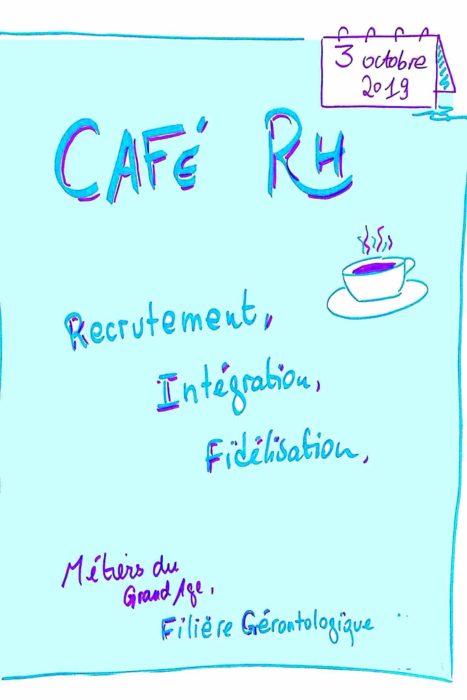 3 octobre
2019
CAFÉ RH
Recrutement,
Intégration,
Fidélisation,
Métiers du
Grand Age,
Filière Gérontologique